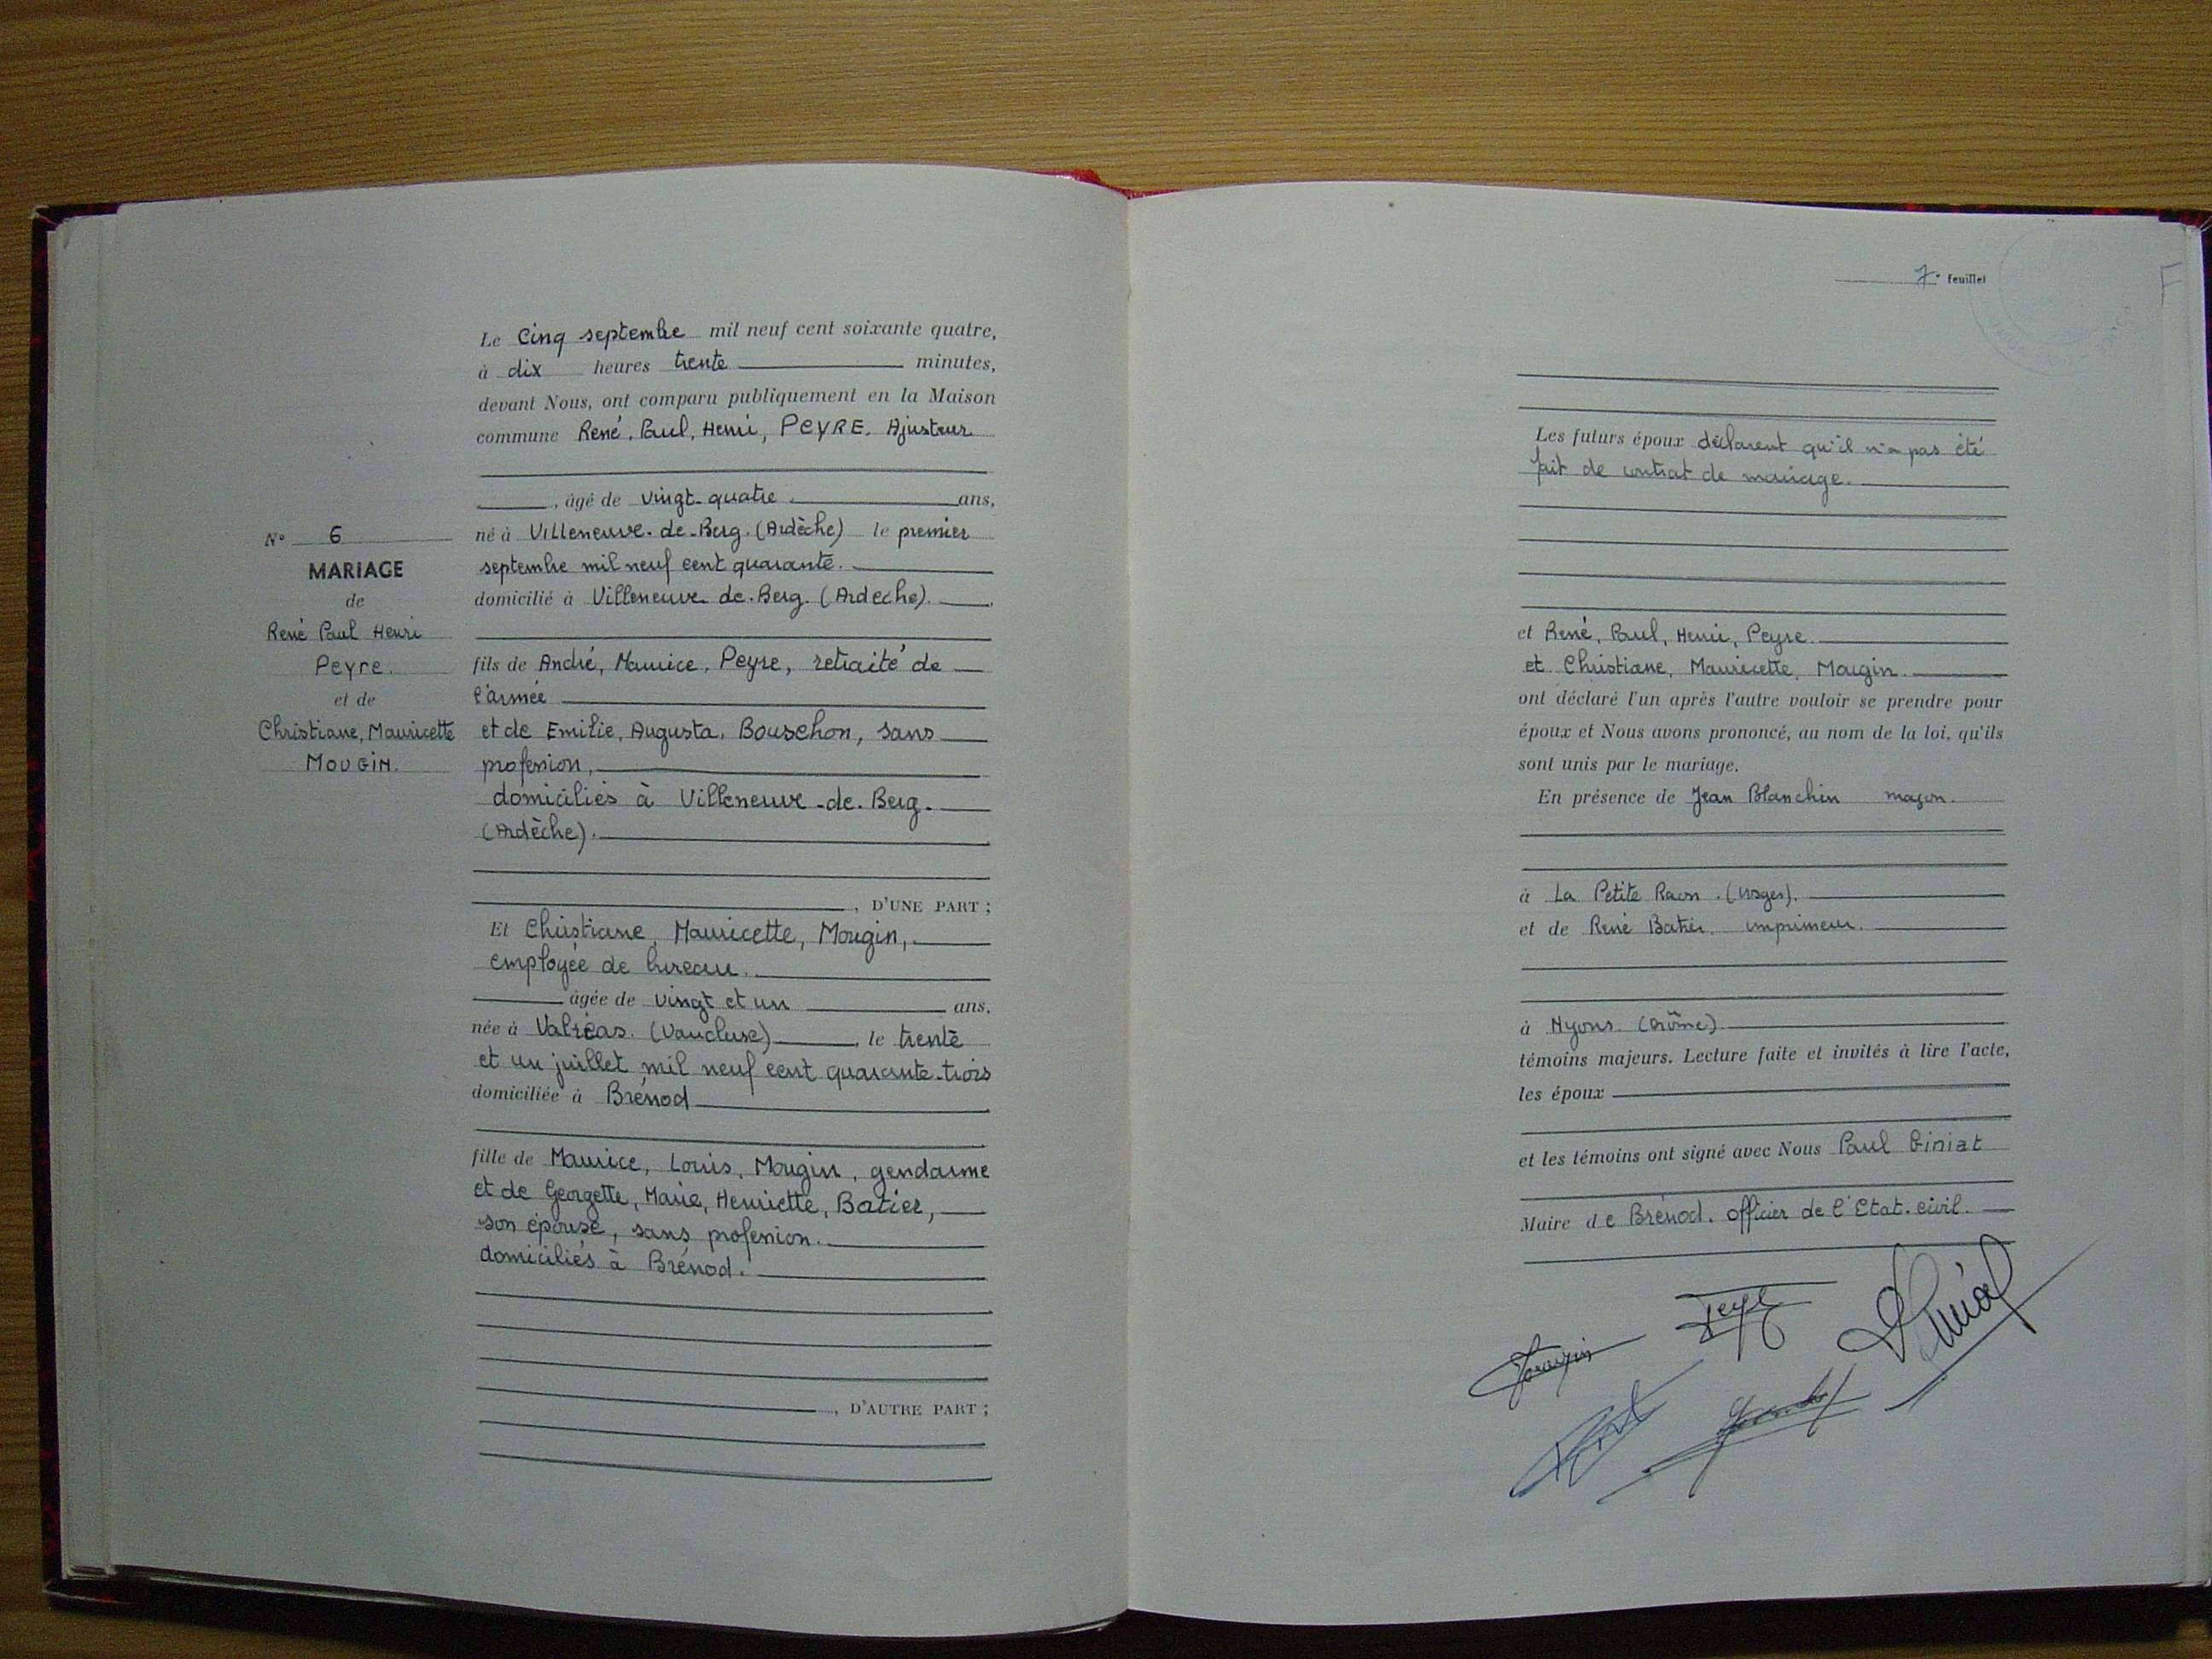 Le Cinq septembre mil neuf cent soixante quatre,
à dix heures trente minutes,
devant Nous, ont comparu publiquement en la Maison
commune René, Paul, Henri, PEYRE. Ajusteur
, âgé de vingt-quatre ans,
né à Villeneuve-de-Berg. (Ardèche) le premier
septembre mil neuf cent quarante.
domicilié à Villeneuve de-Berg. (Ardeche).
fils de André, Maurice, Peyre, retraité de
l'armée
et de Emilie, Augusta, Bouschon, sans
profession,
domiciliés à Villeneuve-de-Berg.
(Ardèche).
, D'UNE PART ;
N° 6
MARIAGE
de
René Paul Henri
Peyre.
et de
Christiane, Mauricette
MOUGIN.
Et Christiane, Mauricette, Mougin,
employée de bureau.
âgée de vingt et un ans.
née à Valréas. (Vaucluse), le trente
et un juillet mil neuf cent quarante-trois
domiciliée à Brénod
fille de Maurice, Louis, Mougin, gendarme
et de Georgette, Marie, Henriette, Batier,
son épouse, sans profession.
domiciliés à Brénod.
, D'AUTRE PART ;
7e feuillet
F
Les futurs époux déclarent qu'il n'a pas été
fait de contrat de mariage.
et René, Paul, Henri, Peyre.
et Christiane, Mauricette, Mougin.
ont déclaré l'un après l'autre vouloir se prendre pour
époux et Nous avons prononcé, au nom de la loi, qu'ils
sont unis par le mariage.
En présence de Jean Blanchin maçon.
à La Petite Raon. (Vosges).
et de René Batier. imprimeur.
à Nyons. (Drôme)
témoins majeurs. Lecture faite et invités à lire l'acte,
les époux
et les témoins ont signé avec Nous Paul Giniat
Maire de Brénod. officier de l'Etat-civil.
Mougin
Peyre